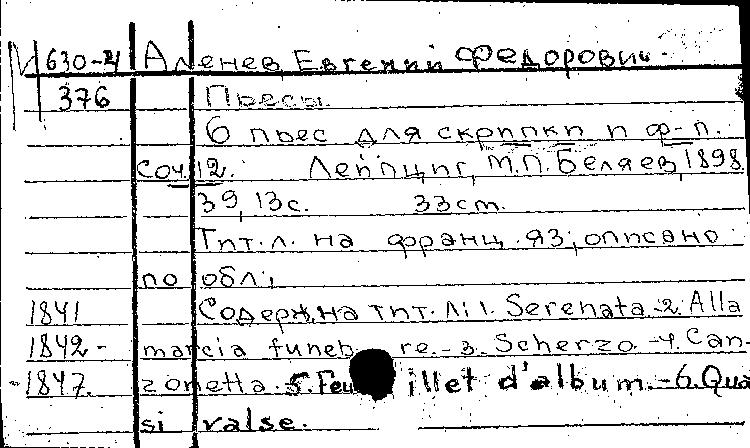 М 630-4 Аленев, Евгений Федорович.
376 Пьесы.
6 пьес для скрипки и ф-п.
Соч. 12. Лейпциг, М.П. Беляев, 1898
39, 13 с. 33 cm.
Тит. л. на франц. яз; описано
по обл;
1841 Содерж. на тит. л: 1. Serenata.-2. Alla
1842- marcia funebre.-3. Scherzo.-4. Can-
-1847. zonetta.-5. Feuillet d'album.-6. Qua
si valse.